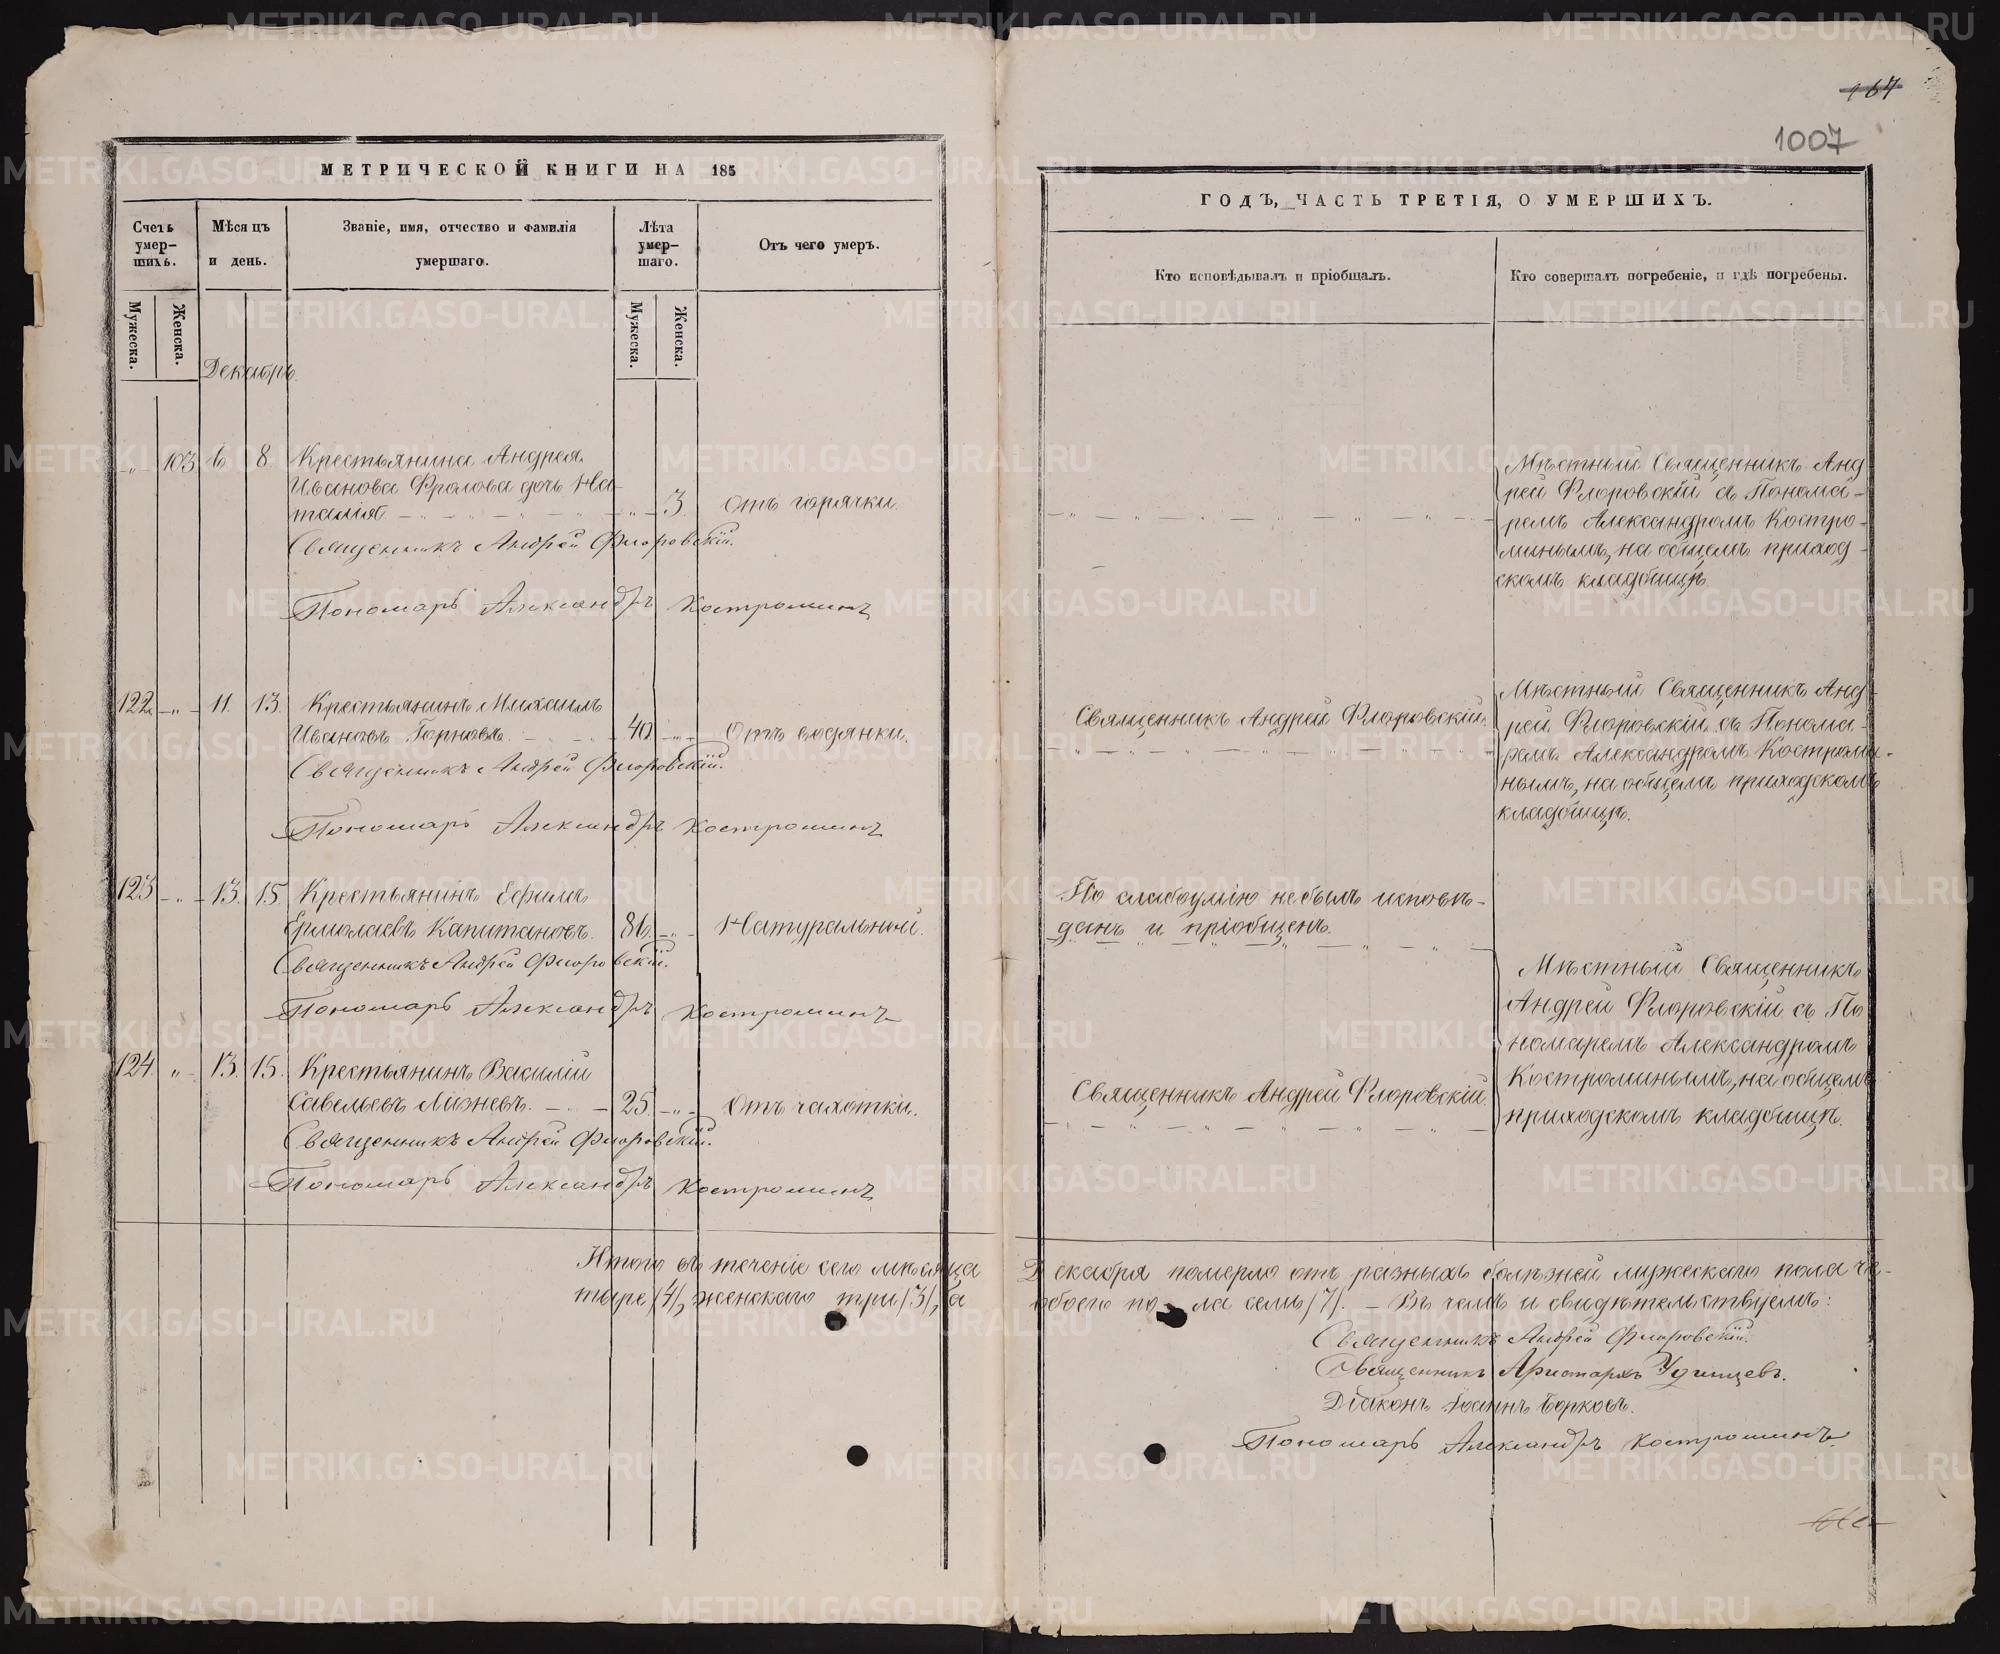 167
1007
МЕТРИЧЕСКОЙ КНИГИ НА 185
Счетъ умер-шихъ.
Мѣсяцъ и день.
Званіе, имя, отчество и фамилія умершаго.
Лѣта умер-шаго.
Отъ чего умеръ.
Мужеска.
Женска.
Мужеска.
Женска.
Декабрь.
„ 103 6 8 Крестьянина Андрея
Иванова Фролова дочь На-
талія „ 3. Отъ горячки.
Священникъ Андрей Флоровскій.
Пономарь Александръ Костроминъ
122 „ 11. 13. Крестьянинъ Михаилъ
Ивановъ Горновъ. 40 „ Отъ водянки.
Священникъ Андрей Флоровскій.
Пономарь Александръ Костроминъ
123 „ 13. 15. Крестьянинъ Ефимъ
Ермолаевъ Капитановъ. 86. „ Натуральной.
Священникъ Андрей Флоровскій.
Пономарь Александръ Костроминъ
124. „ 13. 15. Крестьянинъ Василій
Савельевъ Мизневъ. 25. „ Отъ чахотки.
Священникъ Андрей Флоровскій.
Пономарь Александръ Костроминъ
Итого въ теченіе сего мѣсяца
тыре /4/, женскаго три /3/, а
ГОДЪ, ЧАСТЬ ТРЕТІЯ, О УМЕРШИХЪ.
Кто исповѣдывалъ и пріобщалъ.
Кто совершалъ погребеніе, и гдѣ погребены.
Мѣстный Священникъ Анд-
рей Флоровскій съ Понома-
ремъ Александромъ Костро-
минымъ, на общемъ приход-
скомъ кладбищѣ.
Священникъ Андрей Флоровскій.
Мѣстный Священникъ Анд-
рей Флоровскій съ Понома-
ремъ Александромъ Костроми-
нымъ, на общемъ приходскомъ
кладбищѣ.
По слабоумію не былъ исповѣ-
данъ и пріобщенъ.
Мѣстный Священникъ
Андрей Флоровскій съ По
номаремъ Александромъ
Костроминымъ, на общемъ
приходскомъ кладбищѣ.
Священникъ Андрей Флоровскій.
Декабря померло отъ разныхъ болѣзней мужескаго пола че-
обоего по-ла семь /7/. – Въ чемъ и свидѣтельствуемъ:
Священникъ Андрей Флоровскій.
Священникъ Аристархъ Удинцевъ.
Діаконъ Іоаннъ Борковъ.
Пономарь Александръ Костроминъ.
METRIKI.GASO-URAL.RU